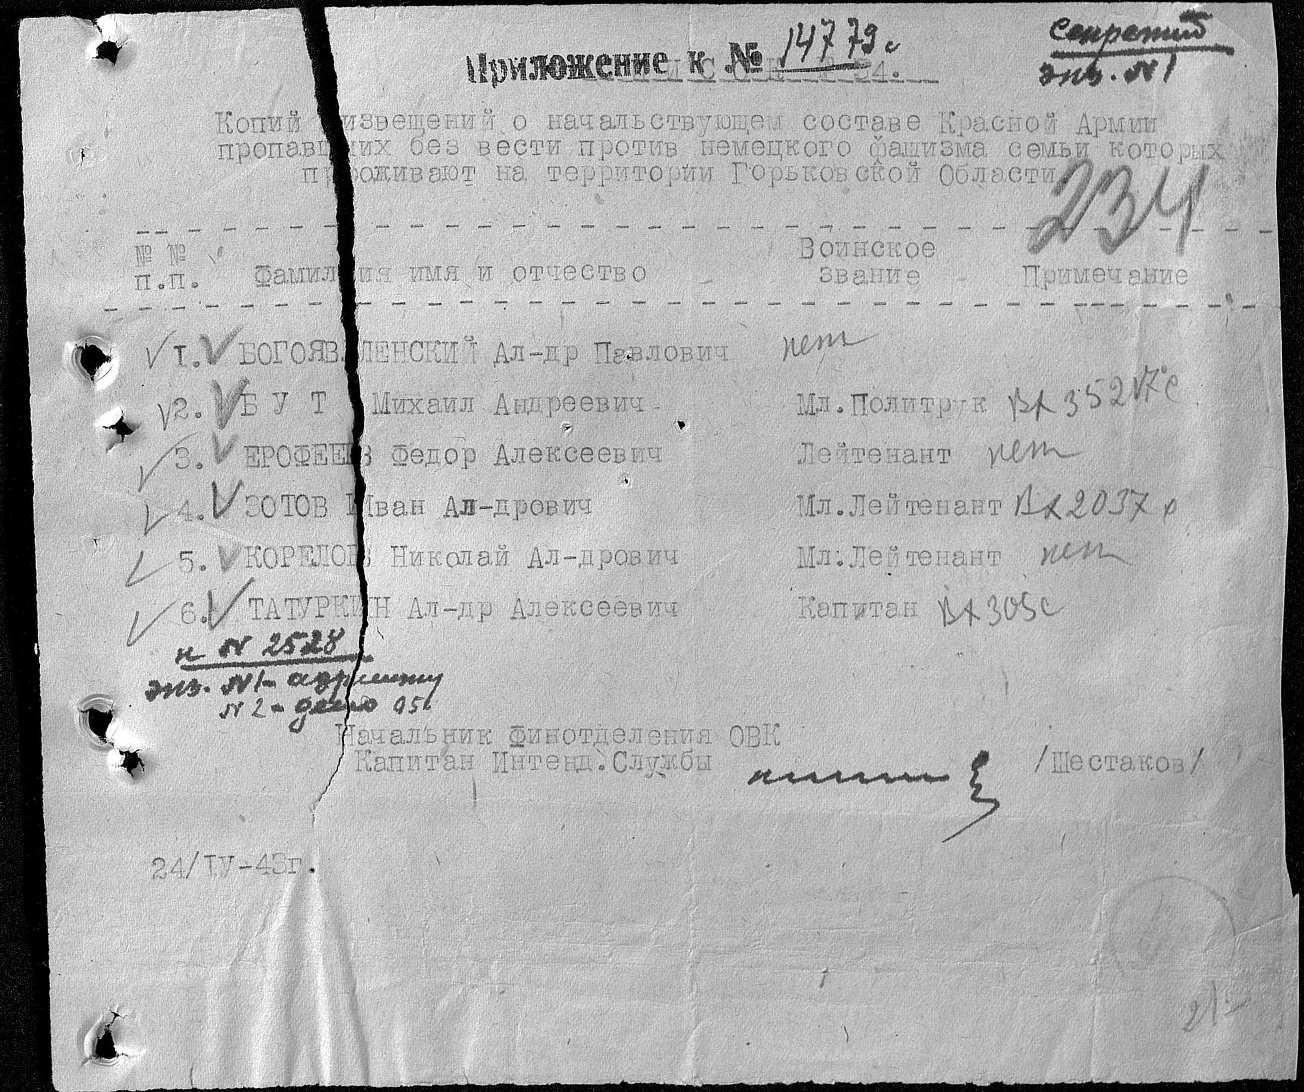 Секретно
экз. №1
Приложение к № 14779с
Копий извещений о начальствующем составе Красной Армии
пропавших без вести против немецкого фашизма семьи которых
проживают на территории Горьковской Области
234
№ № Воинское
п.п. Фамилия имя и отчество звание Примечание
1. БОГОЯВЛЕНСКИЙ Ал-др Павлович нет
2. Б У Т Михаил Андреевич Мл.Политрук Вх 35217с
3. ЕРОФЕЕВ Федор Алексеевич Лейтенант нет
4. ЗОТОВ Иван Ал-дрович Мл.Лейтенант Вх 2037с
5. КОРЕЛОВ Николай Ал-дрович Мл.Лейтенант нет
6. ТАТУРКИН Ал-др Алексеевич Капитан Вх 305с
н № 2528
экз. №1- адресату
№2- дело
Начальник Финотделения ОВК
Капитан Интенд.Службы /Шестаков/
24/IV-43г.